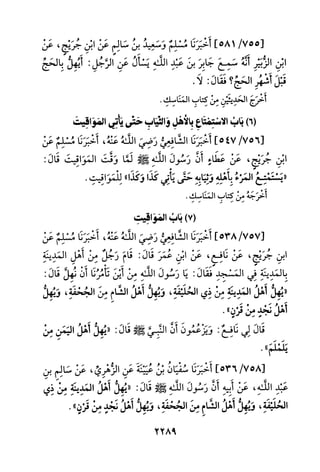 [٧٥٥/ ٥٨١] أَخْبَرَنَا مُسْلِمٌ وَسَعِيدُ بنُ سَالِمٍ عَنْ ابْنِ جُرَيْجٍ، عَنْ
ابْنِ الزُّبَيْرِ أَنَّهُ سَمِعَ جَابِرَ بنَ عَبْدِ اللَّهِ يُسْأَلُ عَنِ الرَّجُلِ: أَيُهِلُّ بِالحَجِّ
قَبْلَ أَشْهُرِ الحَجِّ؟ فَقَالَ: لَا.
أَخْرَجَ الحَدِيثَيْنِ مِنْ كِتَابِ المَنَاسِكِ.
(٦) بَابُ الاسْتِمْتَاعِ بِالأَهْلِ وَالثِّيَابِ حَتَّى يَأْتِيَ المَوَاقِيتَ
[٧٥٦/ ٥٤٧] أَخْبَرَنَا الشَّافِعِيُّ رَضِيَ اللَّهُ عَنْهُ، أَخْبَرَنَا مُسْلِمٌ عَنْ
ابْنِ جُرَيْجٍ، عَنْ عَطَاءٍ أَنَّ رَسُولَ اللَّهِ ﷺ لَمَّا وَقَّتَ المَوَاقِيتَ قَالَ:
«يَسْتَمْتِعُ المَرْءُ بِأَهْلِهِ وَثِيَابِهِ حَتَّى يَأْتِيَ كَذَا وَكَذَا» لِلْمَوَاقِيتِ.
أَخْرَجَهُ مِنْ كِتَابِ المَنَاسِكِ.
(٧) بَابُ المَوَاقِيتِ
[٧٥٧/ ٥٣٨] أَخْبَرَنَا الشَّافِعِيُّ رَضِيَ اللَّهُ عَنْهُ، أَخْبَرَنَا مُسْلِمٌ عَنْ
ابنِ جُرَيْجٍ، عَنْ نَافِعٍ، عَنْ ابْنِ عُمَرَ قَالَ: قَامَ رَجُلٌ مِنْ أَهْلِ المَدِينَةِ
بِالمَدِينَةِ فِي المَسْجِدِ فَقَالَ: يَا رَسُولَ اللَّهِ مِنْ أَيْنَ تَأْمُرُنَا أَنْ نُهِلَّ؟ قَالَ:
«يُهِلُّ أَهْلُ المَدِينَةِ مِنْ ذِي الحُلَيْفَةِ، وَيُهِلُّ أَهْلُ الشَّامِ مِنَ الجُحْفَةِ، وَيُهِلُّ
أَهْلُ نَجْدٍ مِنْ قَرْنٍ».
قَالَ لِي نَافِعٌ: وَيَزْعُمُونَ أَنَّ النَّبِيَّ ﷺ قَالَ: «يُهِلُّ أَهْلُ اليَمَنِ مِنْ
يَلَمْلَمَ».
[٧٥٨/ ٥٣٦] أَخْبَرَنَا سُفْيَانُ بْنُ عُيَيْنَةَ عَنِ الزُّهْرِيِّ، عَنْ سَالِمِ بنِ
عَبْدِ اللَّهِ، عَنْ أَبِيهِ أَنَّ رَسُولَ اللَّهِ ﷺ قَالَ: «يُهِلُّ أَهْلُ المَدِينَةِ مِنْ ذِي
الحُلَيْفَةِ، وَيُهِلُّ أَهْلُ الشَّامِ مِنَ الجُحْفَةِ، وَيُهِلُّ أَهْلُ نَجْدٍ مِنْ قَرْنٍ».
٢٢٨٩